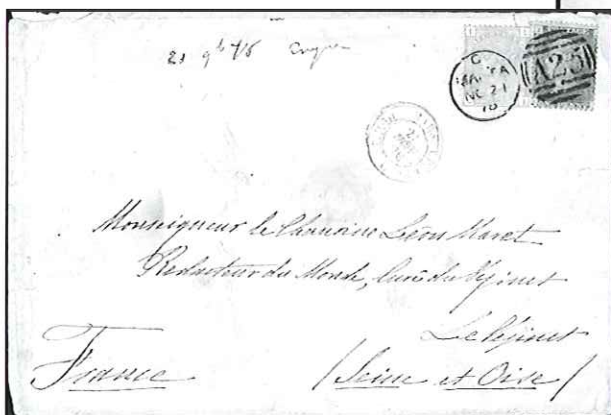 21 9b 78
A25
MALTA
NO 21
78
Monseigneur le Chanoine Léon Maret
Rédacteur du Monde, Curé du Vésinet
Le Vésinet
France
(Seine et Oise)